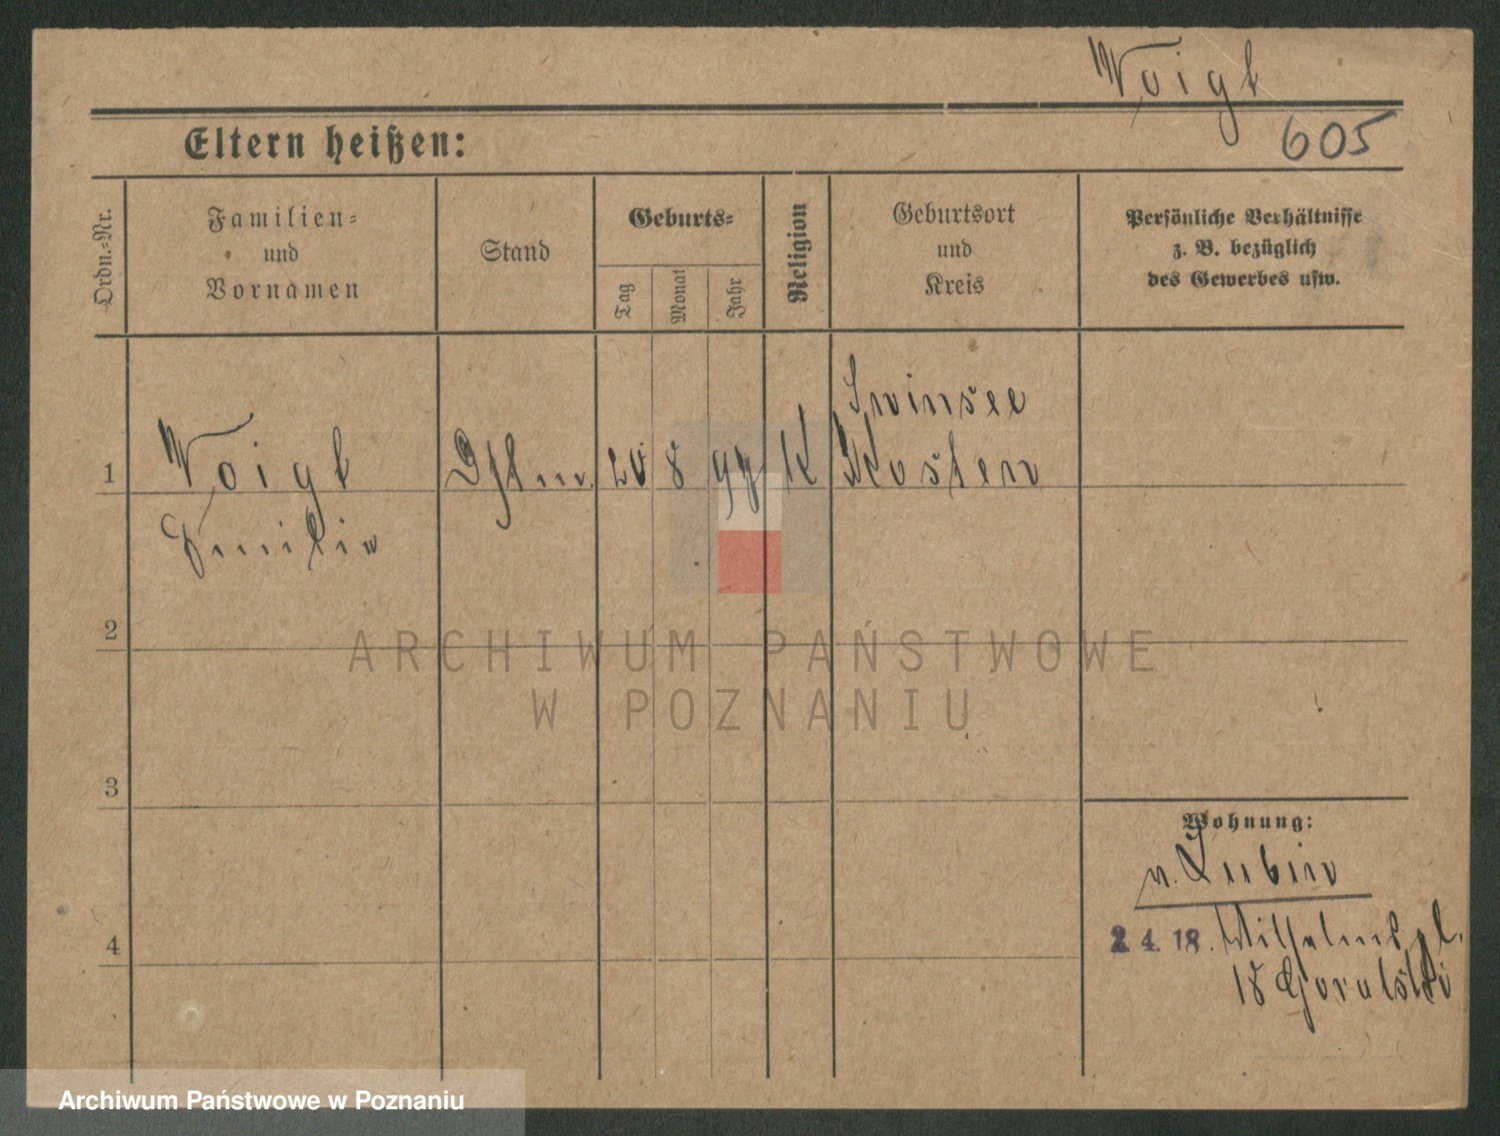 Voigt
Eltern heißen:
605
Ordn.-Nr.
Familien-
und
Vornamen
Stand
Geburts-
Tag
Monat
Jahr
Religion
Geburtsort
und
Kreis
Persönliche Verhältnisse
z. B. bezüglich
des Gewerbes usw.
1
Voigt
Emilie
20
8
97
K
Kosten
2
3
4
Wohnung:
v. Lubin
2 4. 18. Wilhelmspl.
18 Goralski
ARCHIWUM PAŃSTWOWE
W POZNANIU
Archiwum Państwowe w Poznaniu